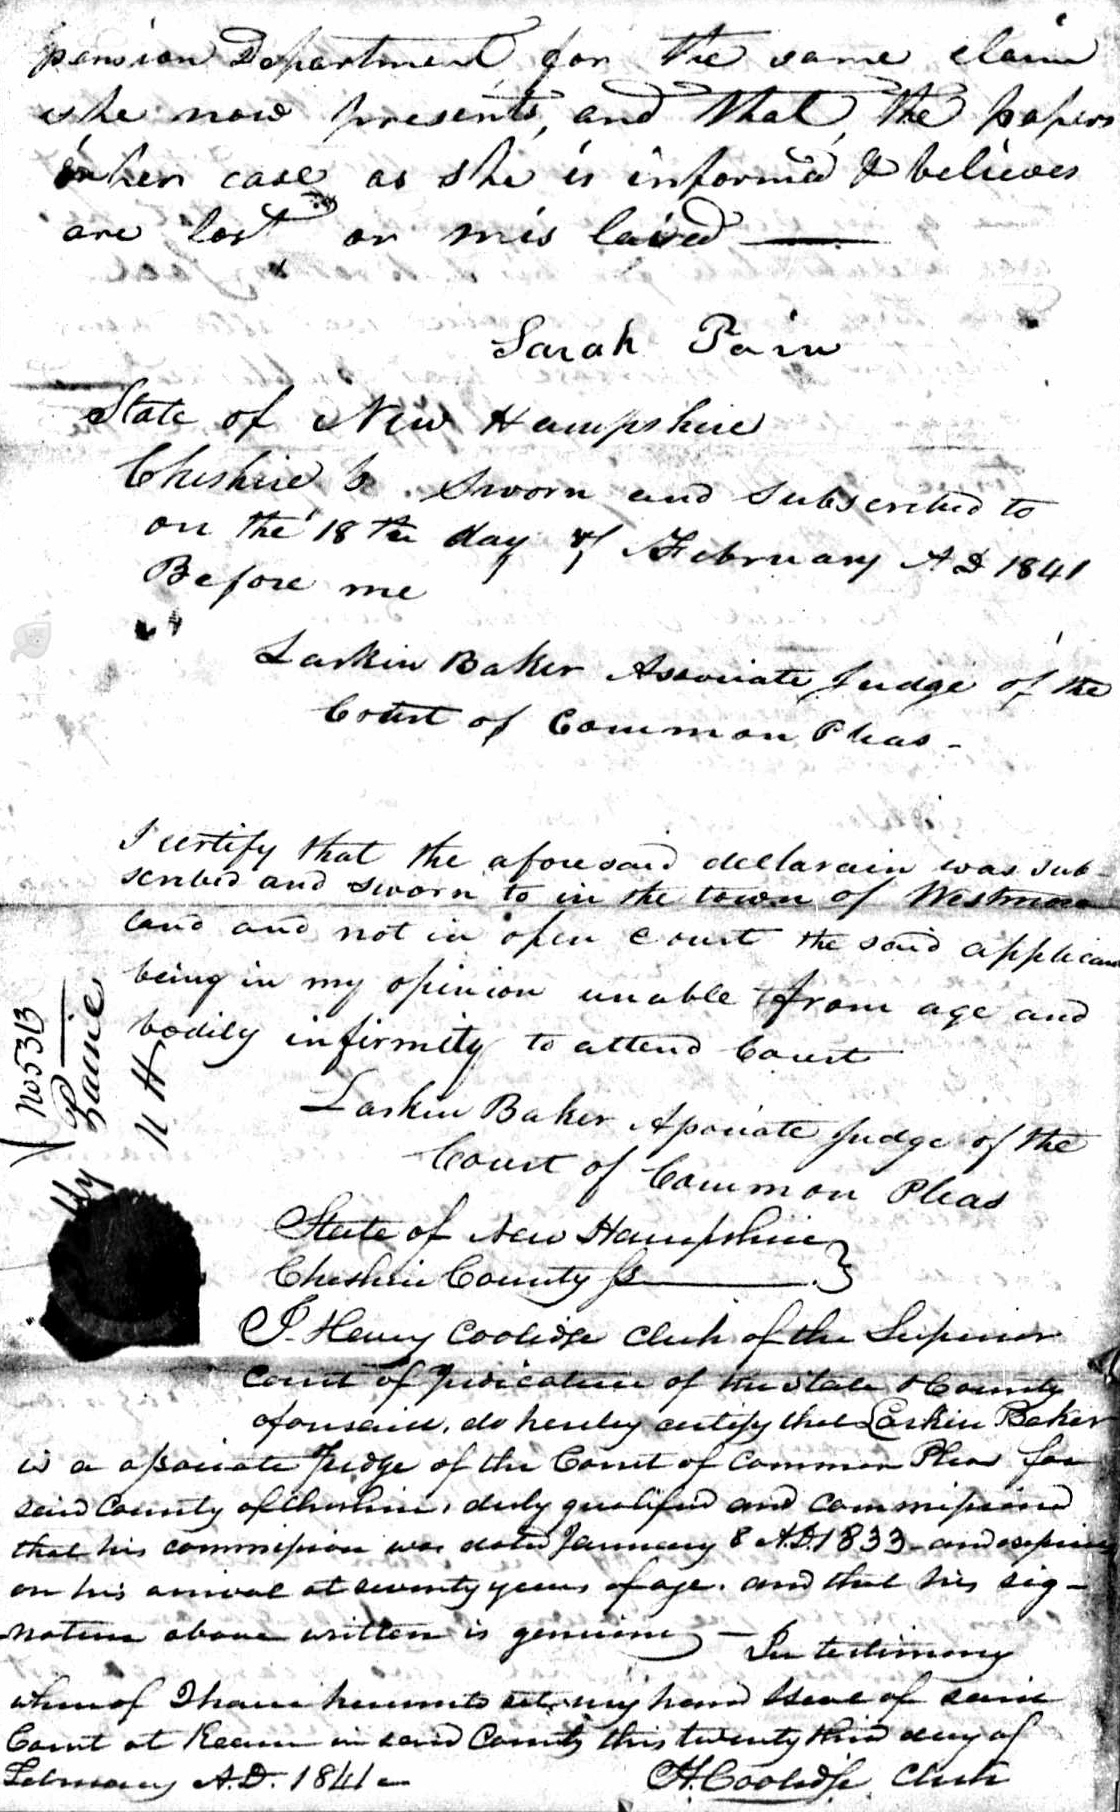 pension Department for the same claim
she now presents, and that, the papers
in her case as she is informed & believes
are lost or mis laied
Sarah Pain
State of New Hampshire
Cheshire Ss. Sworn and Subscribed to
on the 18th day of February AD 1841
Before me
Larkin Baker Associate Judge of the
Court of Common Pleas -
I certify that the aforesaid dellarain was sub-
scribed and sworn to in the town of Westmore
land and not in open Court the said applicant
being in my opinion unable from age and
bodily infirmity to attend Court
Larkin Baker Associate Judge of the
Court of Common Pleas
No 5313
Paine
N H
State of New Hampshire
Cheshire County Ss
I. Henry Coolidge Clerk of the Superior
Court of Judicature of the State & County
aforesaid, do hereby certify that Larkin Baker
is a associate Judge of the Court of Common Pleas for
said County of Cheshire, duly qualified and commissioned
that his commission was dated January 8 A.D. 1833 - and expires
on his arrival at seventy years of age. and that his sig-
nature above written is genuine - In testimony
whereof I have hereunto set my hand & seal of said
Court at Keene in said County this twenty third day of
February A.D. 1841 -
H. Coolidge Clerk